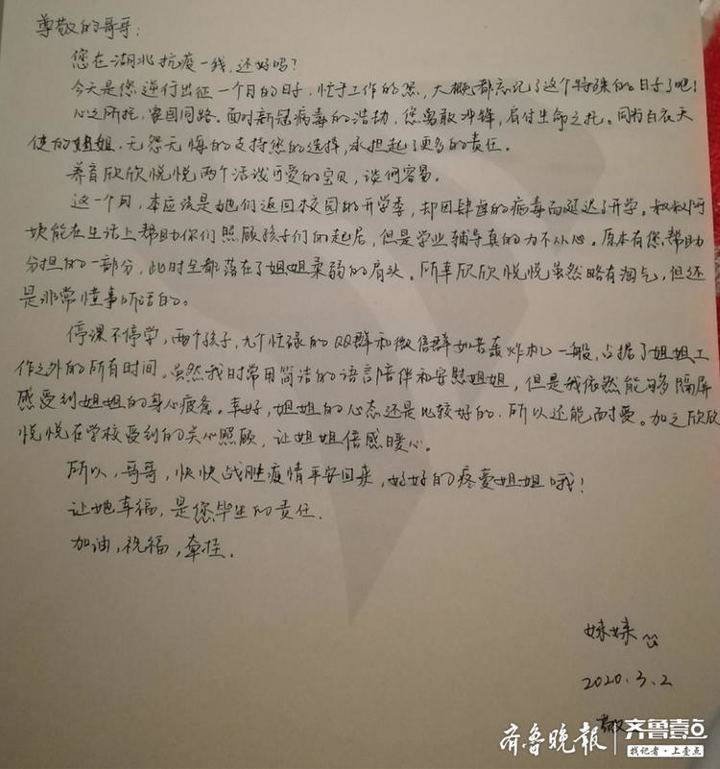 尊敬的哥哥：
您在湖北抗疫一线，还好吗？
今天是您逆行出征一个月的日子，忙于工作的您，大概都忘记了这个特殊的日子了吧！
心之所托，家国同路。面对新冠病毒的浩劫，您勇敢冲锋，肩付生命之托。同为白衣天
使的姐姐，无怨无悔的支持您的选择，承担起了更多的责任。
养育欣欣悦悦两个活泼可爱的宝贝，谈何容易。
这一个月，本应该是她们返回校园的开学季，却因肆虐的病毒而延迟了开学。叔叔阿
姨能在生活上帮助你们照顾孩子们的起居，但是学业辅导真的力不从心。原本有您帮助
分担的一部分，此时全部落在了姐姐柔弱的肩头。所幸欣欣悦悦虽然略有淘气，但还
是非常懂事听话的。
停课不停学，两个孩子，九个忙碌的QQ群和微信群如轰炸机一般，占据了姐姐工
作之外的所有时间。虽然我时常用简洁的语言陪伴和安慰姐姐，但是我依然能够隔屏
感受到姐姐的身心疲惫。幸好，姐姐的心态还是比较好的，所以还能耐受。加之欣欣
悦悦在学校受到的关心照顾，让姐姐倍感暖心。
所以，哥哥，快快战胜疫情平安回来，好好的疼爱姐姐哦！
让她幸福，是您毕生的责任。
加油，祝福，牵挂。
妹妹
2020.3.2
敬
齐鲁晚报 齐鲁壹点
找记者·上壹点